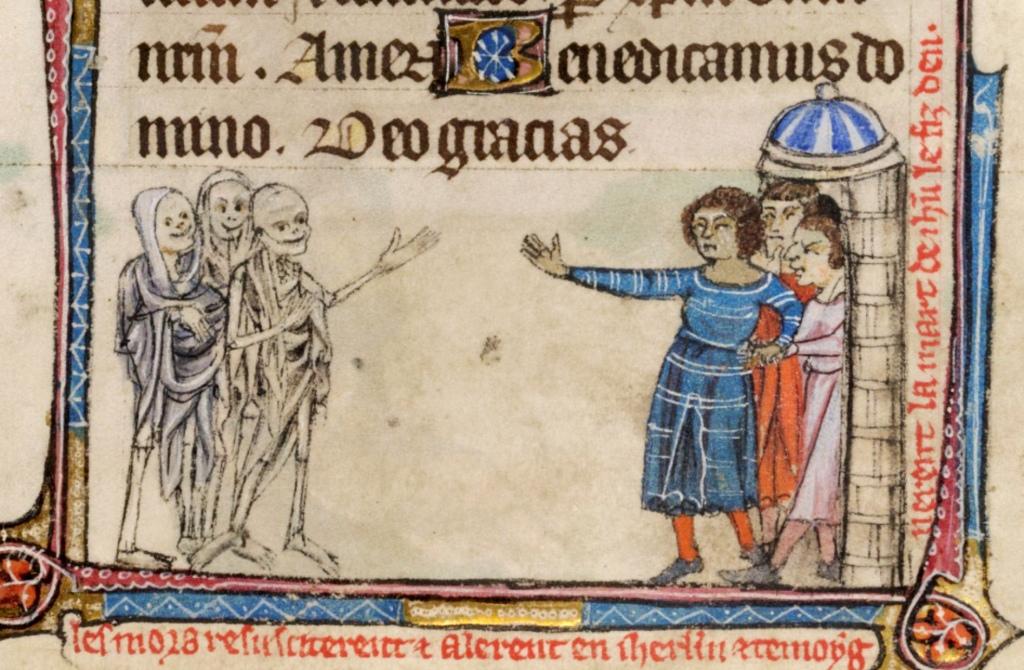 nrm̄. Amen Benedicamus do
mino. Deo gracias.
les mors resusciterent ⁊ alerent en iherlm ⁊ temoyg
nerent la mart de ihū le fiz deu.